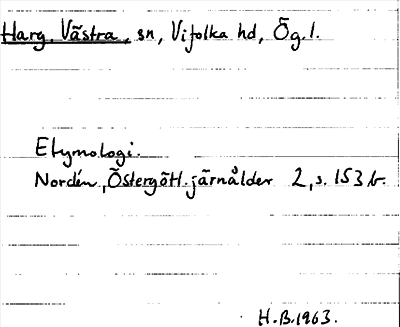 Harg, Västra, sn, Vifolka hd, Ög.l.
Etymologi.
Nordén, Östergötl. järnålder 2, s. 153 b.
H.B. 1963.